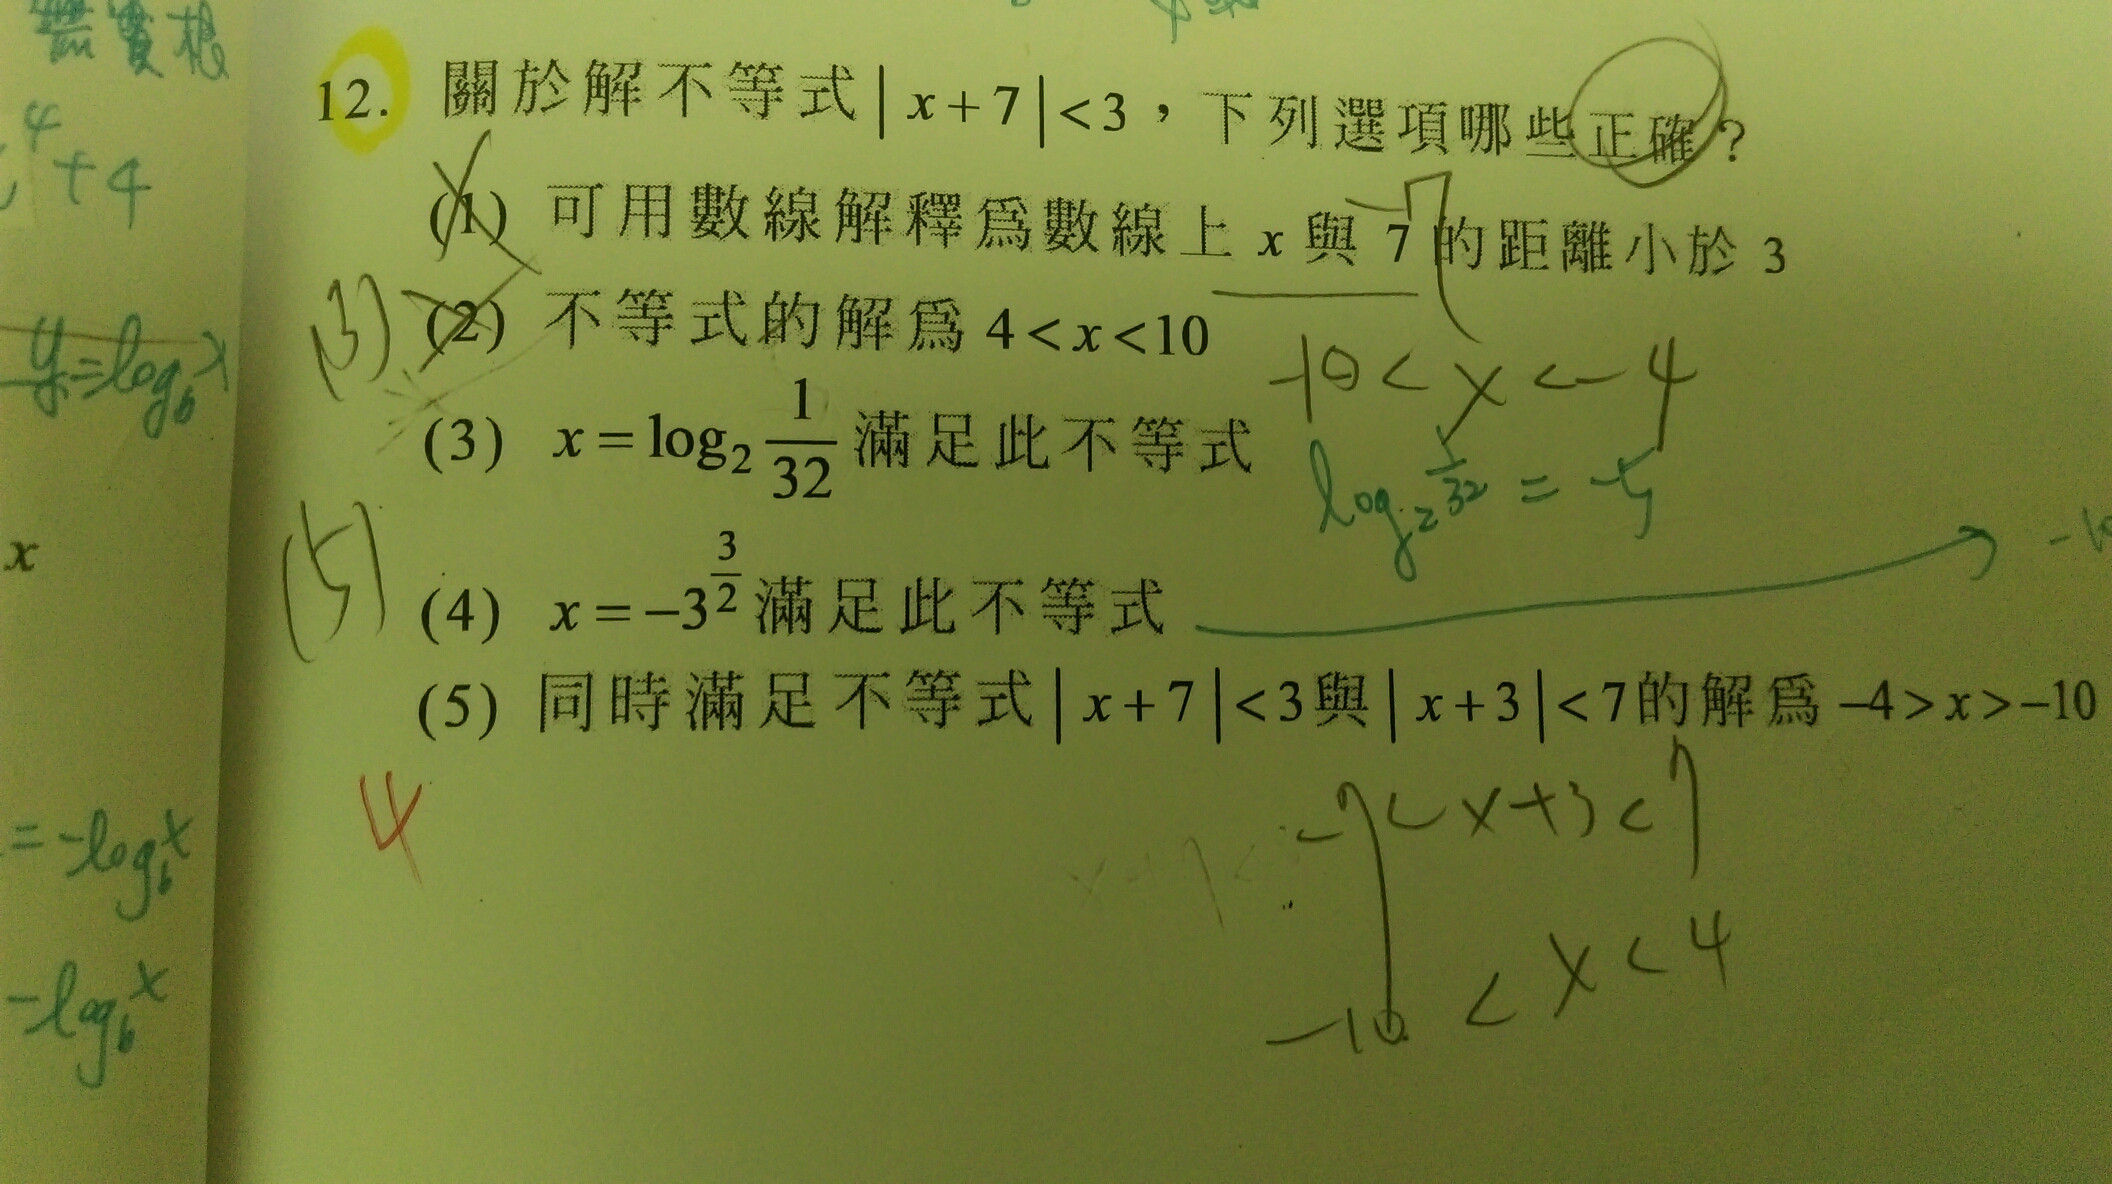 無實根
4
+4
y=log_b x
x
= -log_b x
-log_b x
12. 關於解不等式|x+7|<3，下列選項哪些正確？
(1) 可用數線解釋為數線上 x 與 7 的距離小於 3
-7
(3)
(2) 不等式的解為 4<x<10
-10<x<-4
(3) x=log₂ 1/32 滿足此不等式
log₂ 1/32 = -5
(5)
(4) x=-3^(3/2) 滿足此不等式
-10
(5) 同時滿足不等式|x+7|<3與|x+3|<7的解為 -4>x>-10
4
-7<x+3<7
-10<x<4